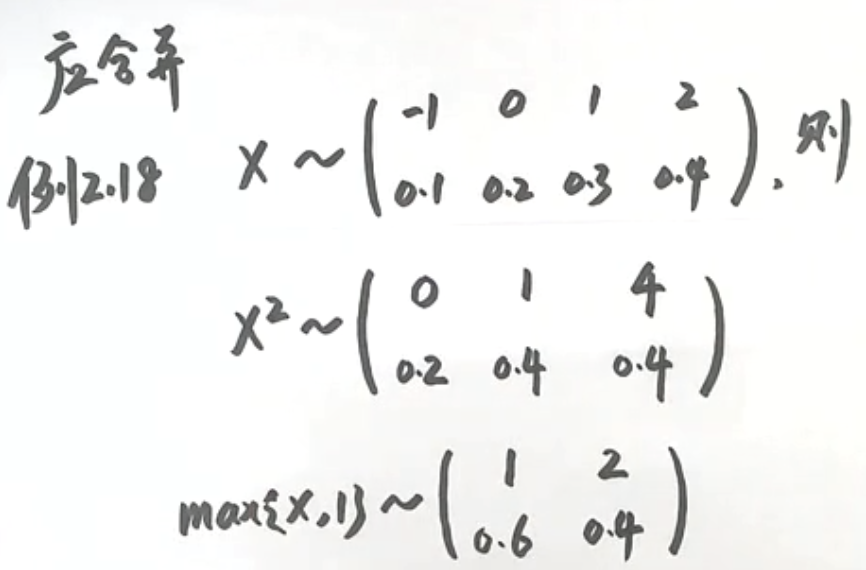 应合并
例2.18 X ~ ( -1 0 1 2
0.1 0.2 0.3 0.4 ), 则
X² ~ ( 0 1 4
0.2 0.4 0.4 )
max{X,1} ~ ( 1 2
0.6 0.4 )